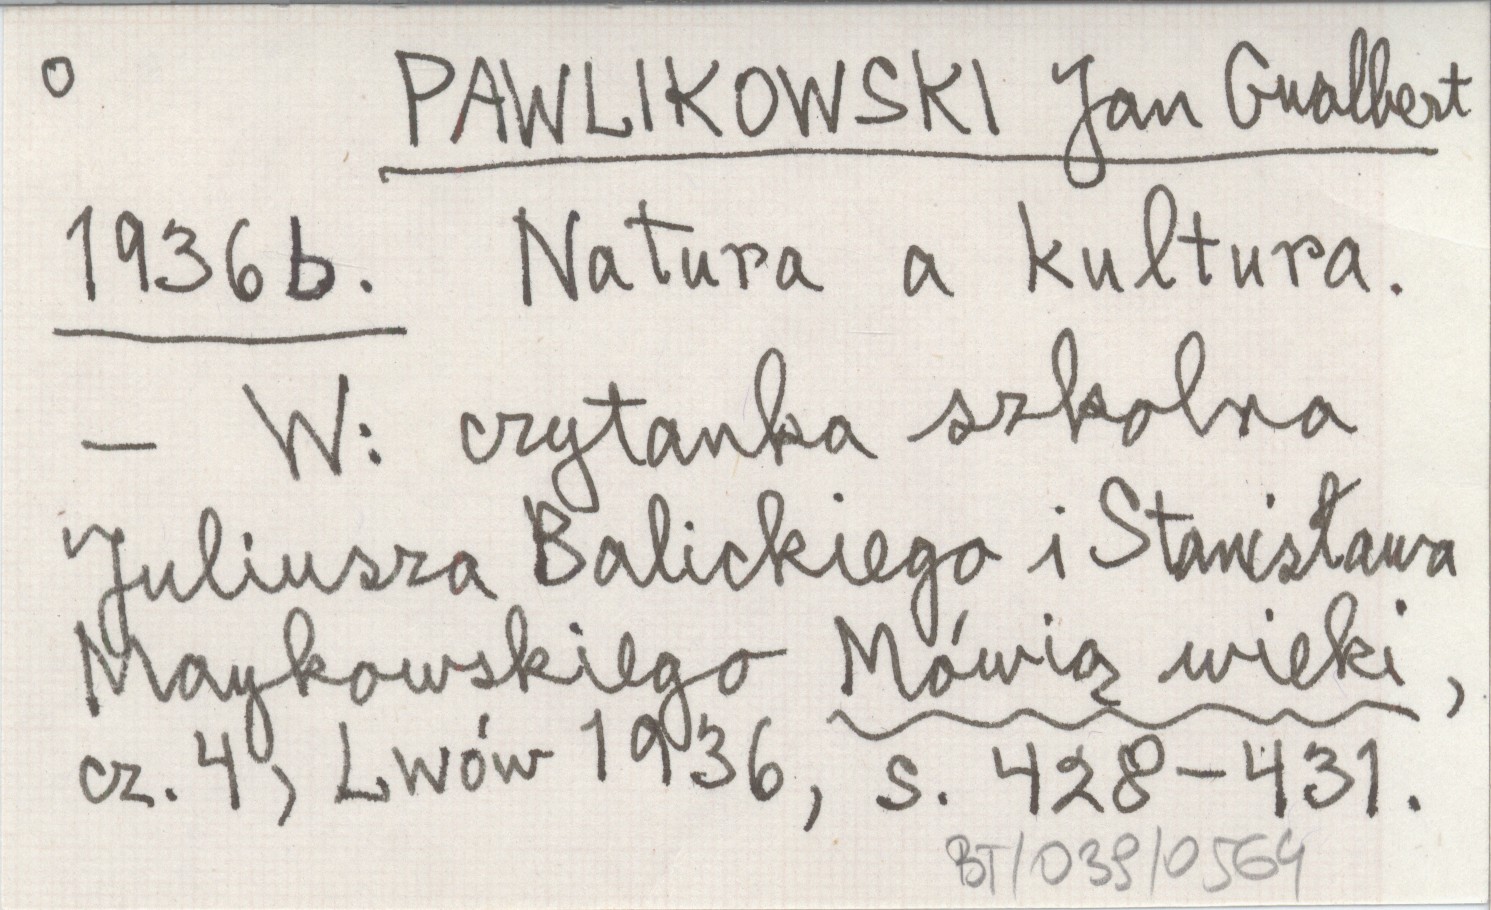 o PAWLIKOWSKI Jan Gualbert
1936b. Natura a kultura.
– W: czytanka szkolna
Juliusza Balickiego i Stanisława
Maykowskiego Mówią wieki,
cz. 4, Lwów 1936, s. 428–431.
BT/039/0564